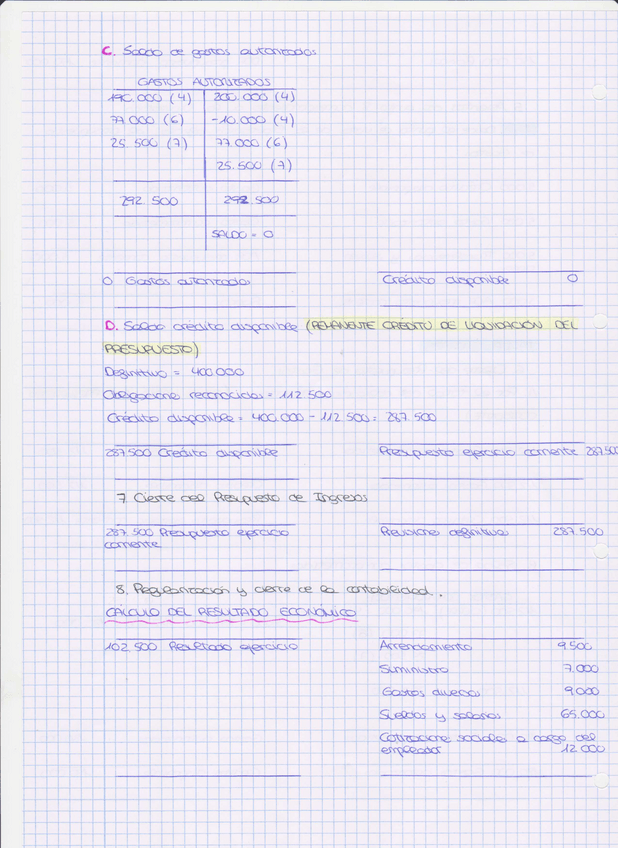 C. Saldo de gastos autorizados
GASTOS AUTORIZADOS
190.000 (4) 200.000 (4)
77.000 (6) -10.000 (4)
25.500 (7) 77.000 (6)
25.500 (7)
292.500 292.500
SALDO = 0
0 Gastos autorizados Crédito disponible 0
D. Saldo crédito disponible (REMANENTE CREDITO DE LIQUIDACIÓN DEL
PRESUPUESTO)
Definitivo = 400.000
Obligaciones reconocidas = 112.500
Crédito disponible = 400.000 - 112.500 = 287.500
287.500 Crédito disponible Presupuesto ejercicio corriente 287.500
7 Cierre del Presupuesto de Ingresos
287.500 Presupuesto ejercicio Previsiones definitivas 287.500
corriente
8. Regularización y cierre de la contabilidad.
CÁLCULO DEL RESULTADO ECONÓMICO
102.500 Resultado ejercicio Arrendamiento 9.500
Suministro 7.000
Gastos diversos 9.000
Sueldos y salarios 65.000
Cotizaciones sociales a cargo del
empleador 12.000